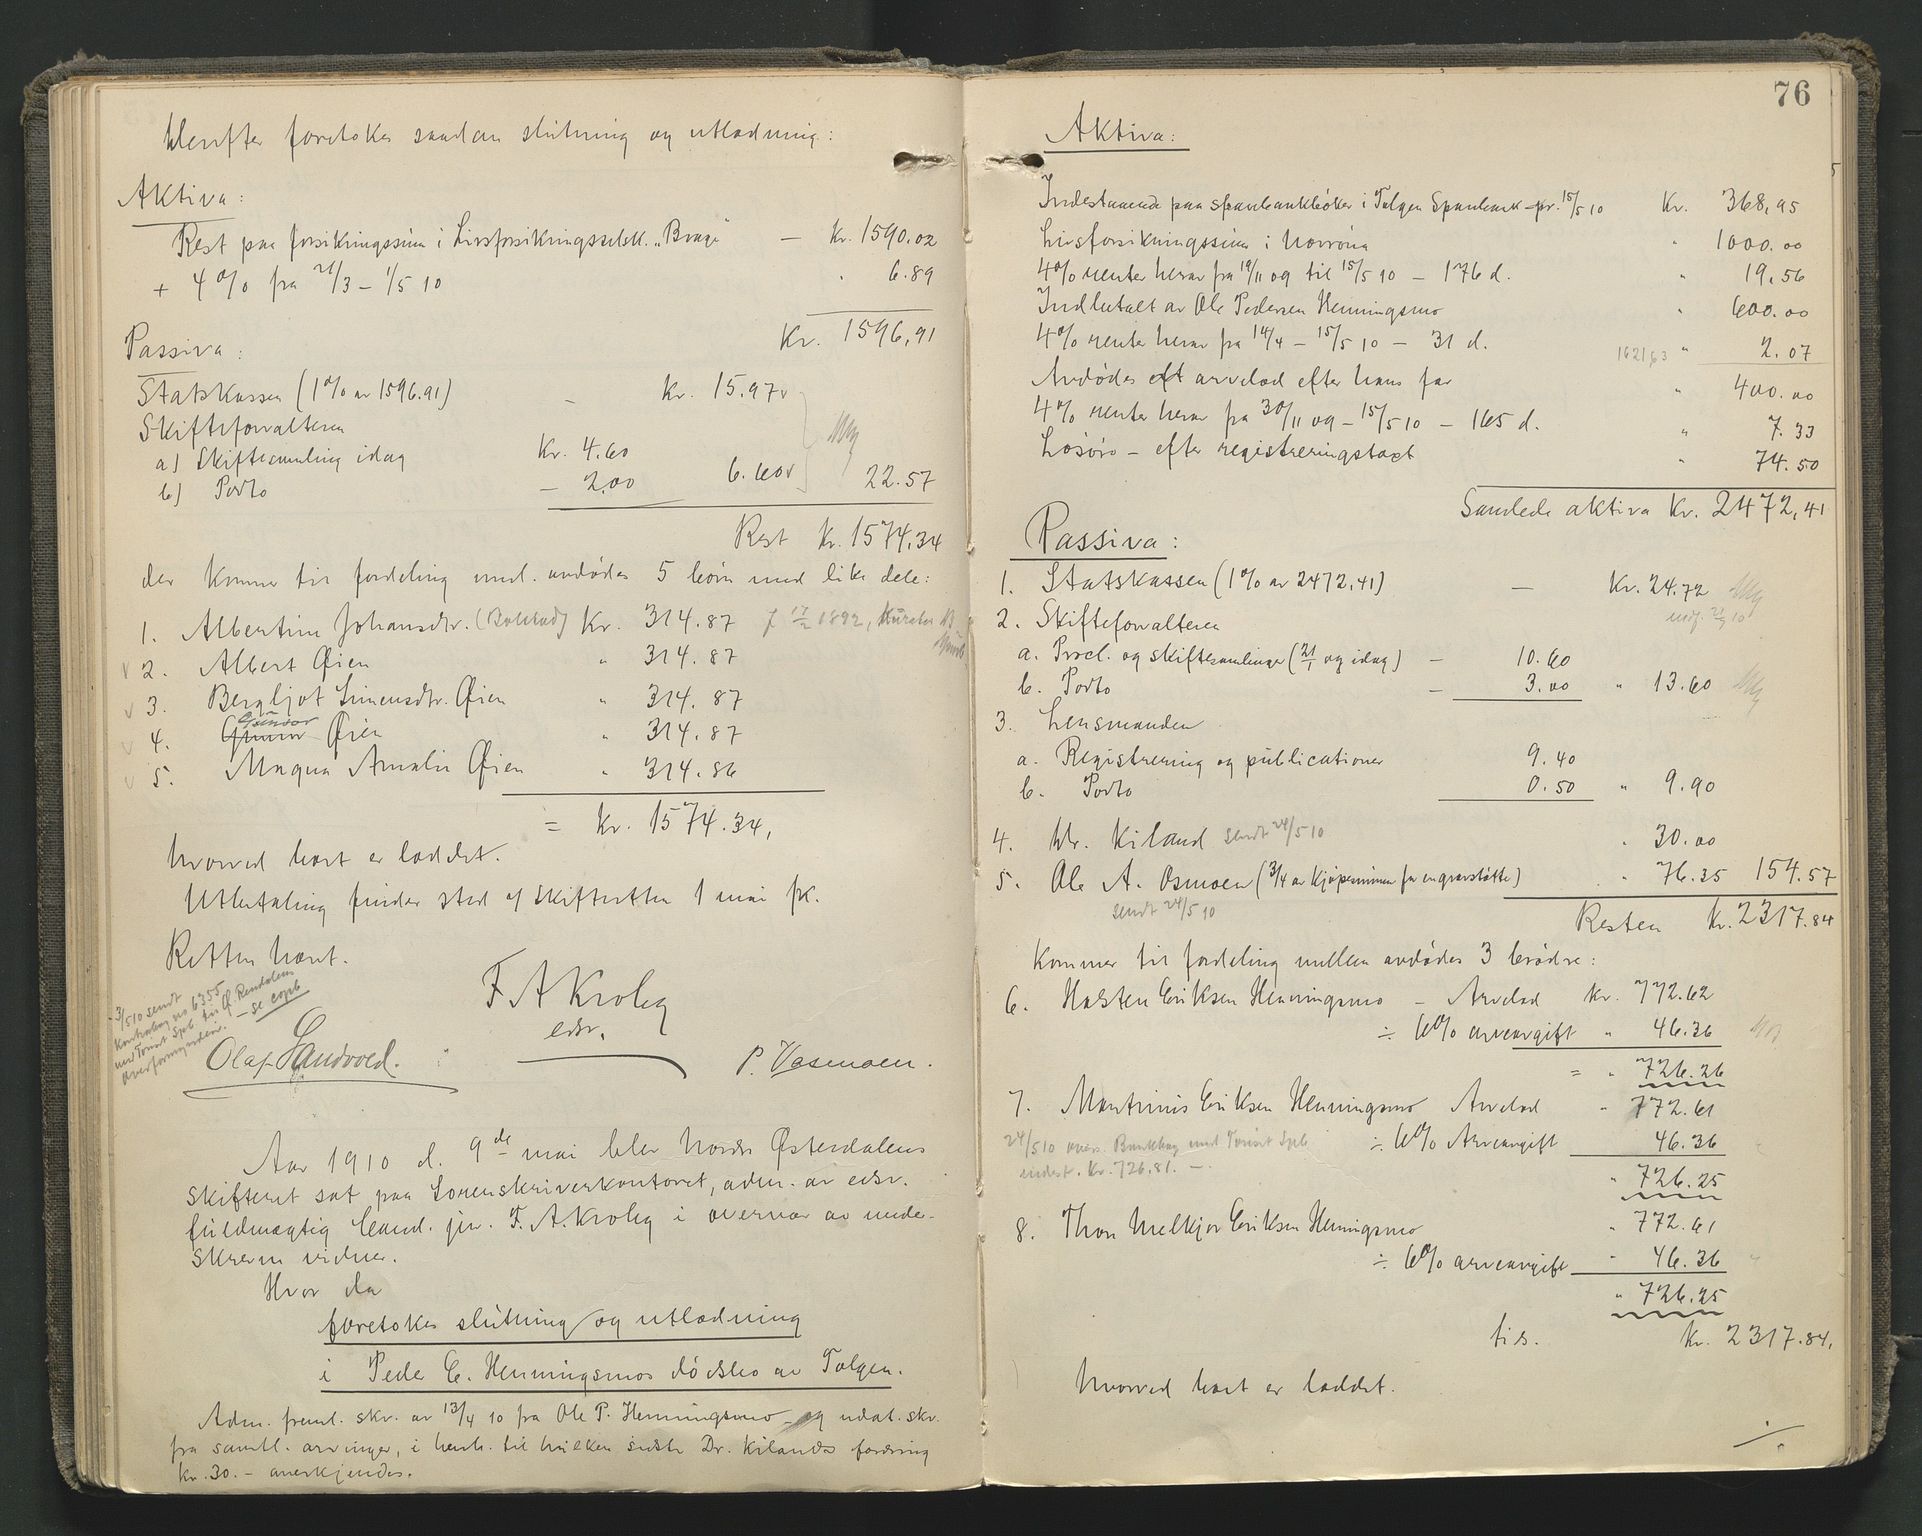 Herefter foretokes saadan slutning og utlodning:
Aktiva:
Rest paa forsikringssum i Livsforsikringsselsk. "Brage" — Kr. 1590.02
+ 4% fra 21/3 – 1/5 10 " 6.89
Kr. 1596,91
Passiva:
Statskassen (1% av 1596.91) – Kr. 15.97
Skifteforvalteren
a) Skiftesamling idag Kr. 4.60
b) Porto — 2,00 6.60 22.57
Rest Kr. 1574.34
der kommer til fordeling mel. avdødes 5 børn med like dele:
1. Albertine Johansdtr. (Bolstad) Kr. 314.87 f 17/2 1892,
2. Albert Øien " 314.87
3. Bergljot Simensdtr. Øien " 314.87
4. Gunvor Øien " 314.87
5. Magna Amalie Øien " 314.86
= Kr. 1574.34,
hvorved boet er loddet.
Utbetaling finder sted af skifteretten 1 mai fk.
Retten hævet.
F A Krohg
edsv.
3/5 10 sendt
Kontrabog no 6355
med Tønset Spb. til O. Rendalens
overformynderi. — se copb
Olaf Sandvold. P. Vasmoen.
Aar 1910 d. 9de mai blev Nordre Østerdalens
skifteret sat paa Sorenskriverkontoret, adm. av edsv.
fuldmægtig Cand. jur. F. A. Krohg i overvær av under-
skrevne vidner.
Hvor da
foretokes slutning og utlodning
i Peder E. Henningsmos dødsbo av Tolgen.
Adm. freml. skr. av 13/4 10 fra Ole P. Henningsmo og udat. skr.
fra samtl. arvinger, i henh. til hvilken sidste Dr. Kilands fordring
kr. 30.– anerkjendes.
76
Aktiva:
Indestaaende paa sparebankbøker i Tolgen Sparebank pr. 15/5 10 Kr. 368,95
Livsforsikringssum i Norrøna " 1000.00
4% renter herav fra 19/11 09 til 15/5 10 – 176 d. " 19.56
Indbetalt av Ole Pedersen Henningsmo " 600.00
4% renter herav fra 14/4 – 15/5 10 – 31 d. 1621,63 " 2.07
Avdødes arvelod efter hans far " 400.00
4% renter herav fra 30/11 09 – 15/5 10 – 165 d. " 7.33
Løsøre – efter registreringstaxt " 74.50
Samlede aktiva Kr. 2472,41
Passiva:
1. Statskassen (1% av 2472,41) — Kr. 24.72
2. Skifteforvalteren
a. Procl. og skiftesamlinger (21/1 og idag) – 10.60
b. Porto – 3.00 " 13.60
3. Lensmanden
a. Registrering og publicationer 9.40
b. Porto 0.50 " 9.90
4. Dr. Kiland sendt 24/5 10 " 30.00
5. Ole A. Osmoen (3/4 av kjøpesummen for en gravstøtte) " 76.35 154.57
sendt 24/5 10
Resten Kr. 2317.84
kommer til fordeling mellem avdødes 3 brødre:
6. Halsten Eriksen Henningsmo – Arvelod Kr. 772.62
÷ 6% arveavgift " 46.36
= " 726.26
7. Martinus Eriksen Henningsmo Arvelod " 772.61
÷ 6% Arveavgift 46.36
24/5 10 overs. Bankbog med Tønset Spb
indest. Kr. 726.81. –
" 726.25
8. Thore Melkjor Eriksen Henningsmo " 772.61
÷ 6% arveavgift " 46.36
" 726.25
tils. Kr. 2317.84,
hvorved boet er loddet.